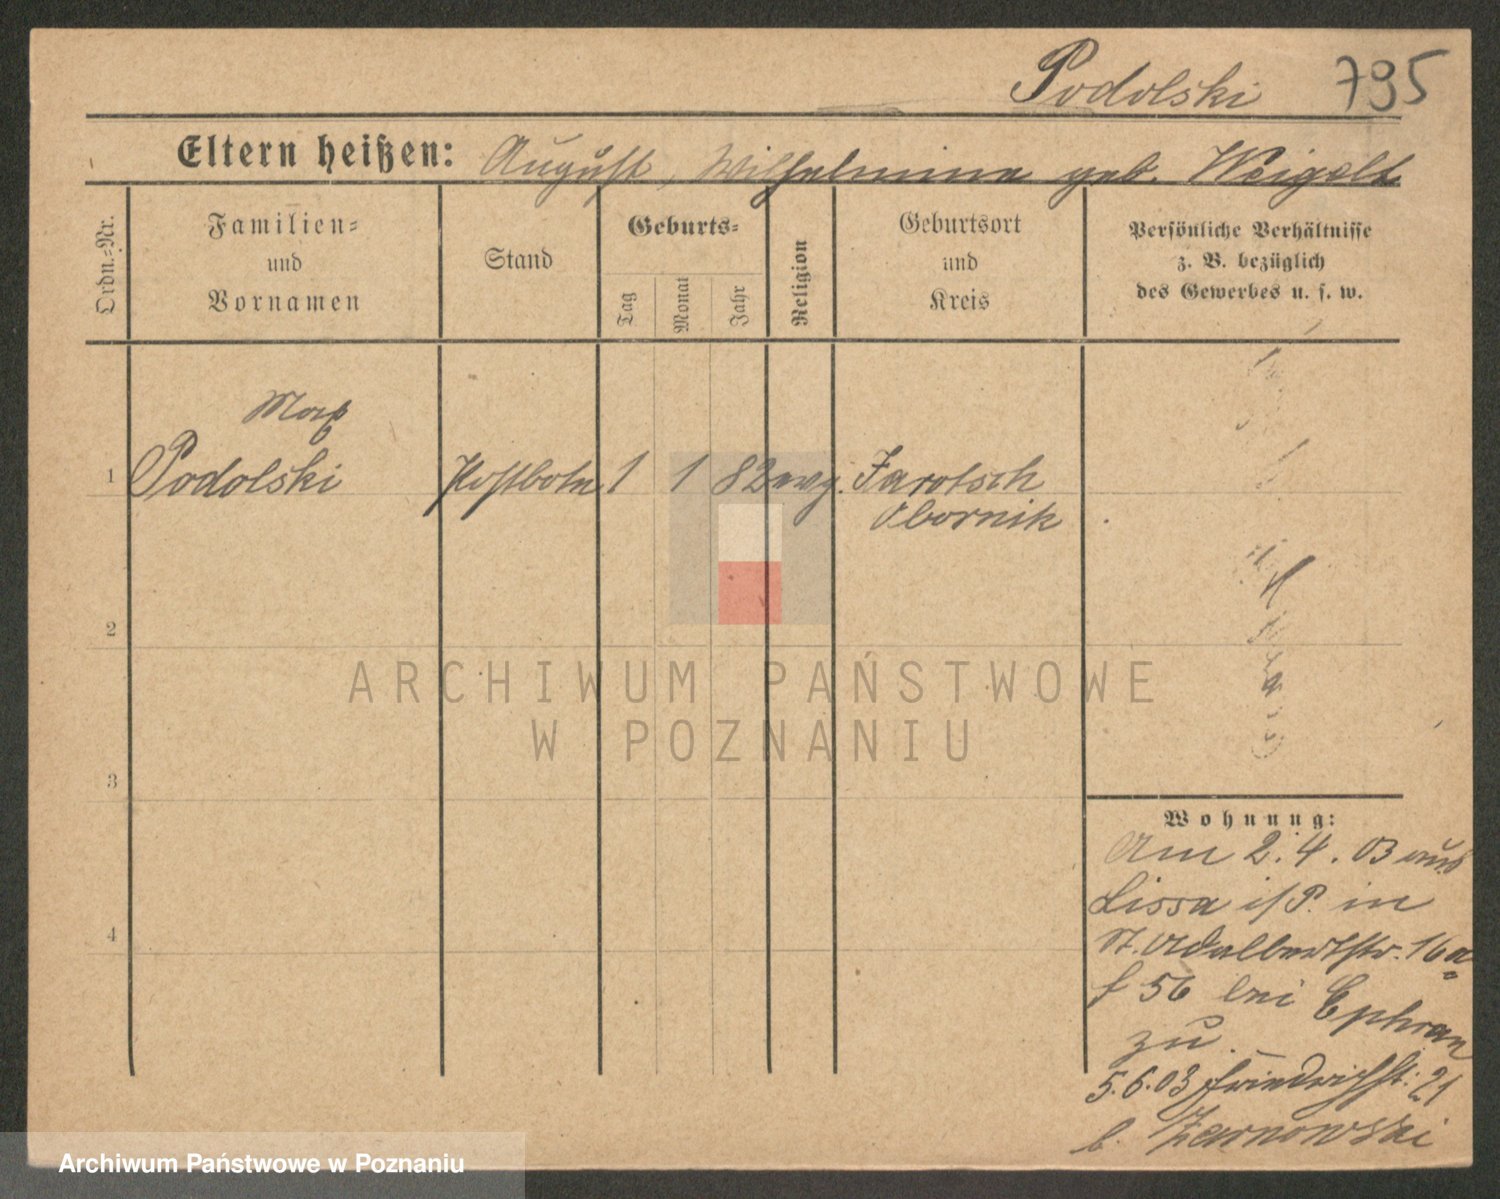 Podolski 795
Eltern heißen: August, Wilhelmine geb. Weigelt
Ordn.-Nr.
Familien-
und
Vornamen
Stand
Geburts-
Tag
Monat
Jahr
Religion
Geburtsort
und
Kreis
Persönliche Verhältnisse
z. B. bezüglich
des Gewerbes u. s. w.
Max
1 Podolski Postbote 1 1 82 evg. Jarotsch
Obornik
2
3
4
Wohnung:
Am 2.4.03 aus
Lissa i/P. in
St. Adalbertstr. 16a
f 56 bei Ephran
zu.
5.6.03 Friedrichst: 21
b. Zarnowski
ARCHIWUM PAŃSTWOWE
W POZNANIU
Archiwum Państwowe w Poznaniu